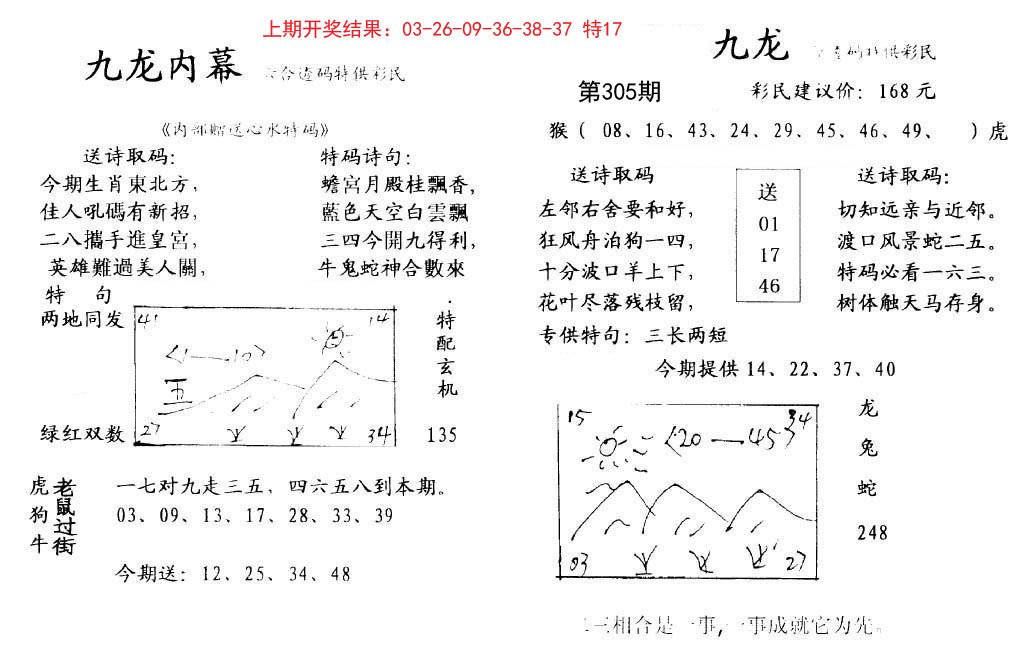 上期开奖结果：03-26-09-36-38-37 特17
九龙内幕 六合透码特供彩民
《内部赠送心水特码》
送诗取码：
今期生肖東北方，
佳人吼碼有新招，
二八攜手進皇宮，
英雄難過美人關，
特码诗句：
蟾宮月殿桂飄香，
藍色天空白雲飄
三四今開九得利，
牛鬼蛇神合數來
特 句
两地同发
绿红双数
41
14
〈1—10〉
五
27
34
特配玄机
135
虎狗牛
老鼠过街
一七对九走三五，四六五八到本期。
03、09、13、17、28、33、39
今期送：12、25、34、48
九龙 透码特供彩民
第305期
彩民建议价：168元
猴（ 08、16、43、24、29、45、46、49、 ）虎
送诗取码
左邻右舍要和好，
狂风舟泊狗一四，
十分波口羊上下，
花叶尽落残枝留，
送
01
17
46
送诗取码：
切知远亲与近邻。
渡口风景蛇二五。
特码必看一六三。
树体触天马存身。
专供特句：三长两短
今期提供14、22、37、40
15
34
〈20—45〉
03
27
龙
兔
蛇
248
二三相合是一事，一事成就它为先。